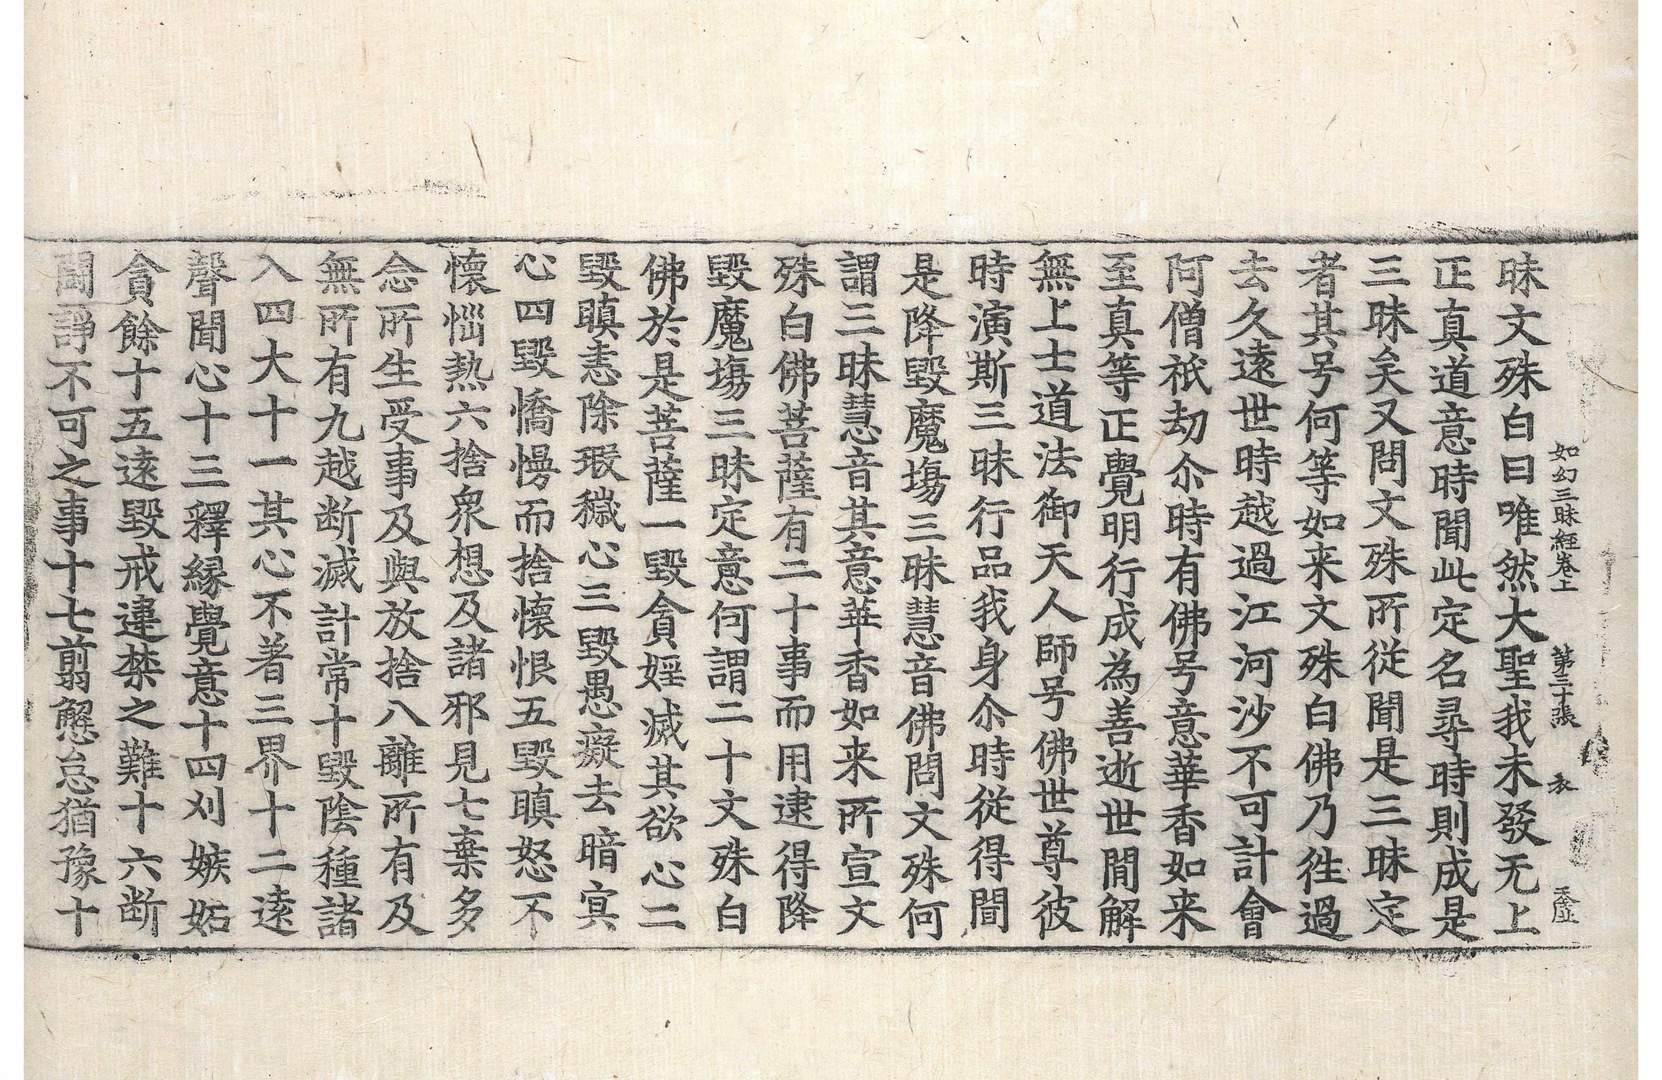 如幻三昧經卷上　第三十張　衣
昧文殊白曰唯然大聖我未發无上
正真道意時聞此定名尋時則成是
三昧矣又問文殊所從聞是三昧定
者其号何等如来文殊白佛乃徃過
去久遠世時越過江河沙不可計會
阿僧祇劫尒時有佛号意華香如来
至真等正覺明行成為善逝世間解
無上士道法御天人師号佛世尊彼
時演斯三昧行品我身尒時從得聞
是降毀魔塲三昧慧音佛問文殊何
謂三昧慧音其意華香如来所宣文
殊白佛菩薩有二十事而用逮得降
毀魔塲三昧定意何謂二十文殊白
佛於是菩薩一毀貪婬滅其欲心二
毀瞋恚除瑕穢心三毀愚癡去暗冥
心四毀憍慢而捨懷恨五毀瞋怒不
懷惱熱六捨衆想及諸邪見七棄多
念所生受事及與放捨八離所有及
無所有九越断滅計常十毀陰種諸
入四大十一其心不著三界十二遠
聲聞心十三釋縁覺意十四刈嫉妬
貪餘十五遠毀戒違禁之難十六断
鬪諍不可之事十七剪懈怠猶豫十